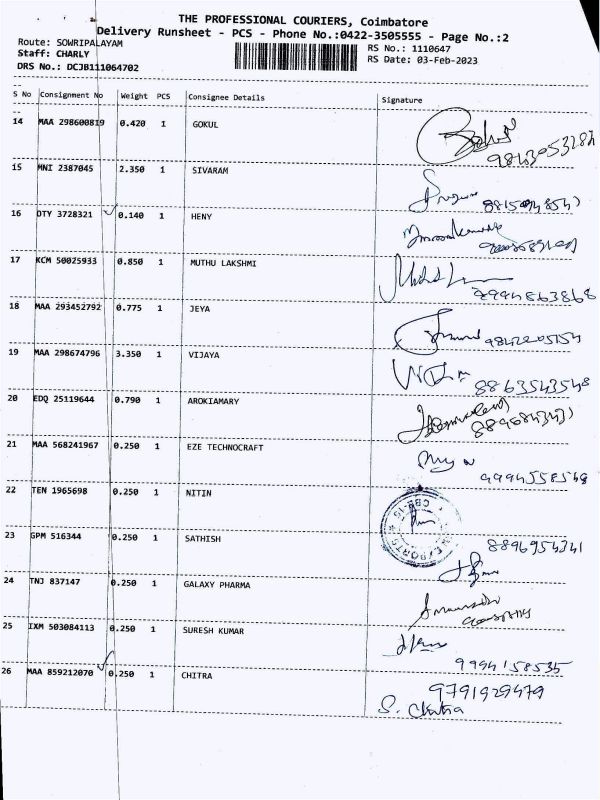 THE PROFESSIONAL COURIERS, Coimbatore
Delivery Runsheet - PCS - Phone No.:0422-3505555 - Page No.:2
Route: SOWRIPALAYAM
RS No.: 1110647
Staff: CHARLY
RS Date: 03-Feb-2023
DRS No.: DCJB111064702
S No Consignment No Weight PCS Consignee Details Signature
14 MAA 298600819 0.420 1 GOKUL
15 MNI 2387045 2.350 1 SIVARAM
16 OTY 3728321 0.140 1 HENY
17 KCM 50025933 0.850 1 MUTHU LAKSHMI
9994863868
18 MAA 293452792 0.775 1 JEYA
9842205154
19 MAA 298674796 3.350 1 VIJAYA
8863543548
20 EDQ 25119644 0.790 1 AROKIAMARY
21 MAA 568241967 0.250 1 EZE TECHNOCRAFT
9994558548
22 TEN 1965698 0.250 1 NITIN
23 GPM 516344 0.250 1 SATHISH
8896954341
24 TNJ 837147 0.250 1 GALAXY PHARMA
25 IXM 503084113 0.250 1 SURESH KUMAR
9994158535
26 MAA 859212070 0.250 1 CHITRA
9791929479
S. Chitra